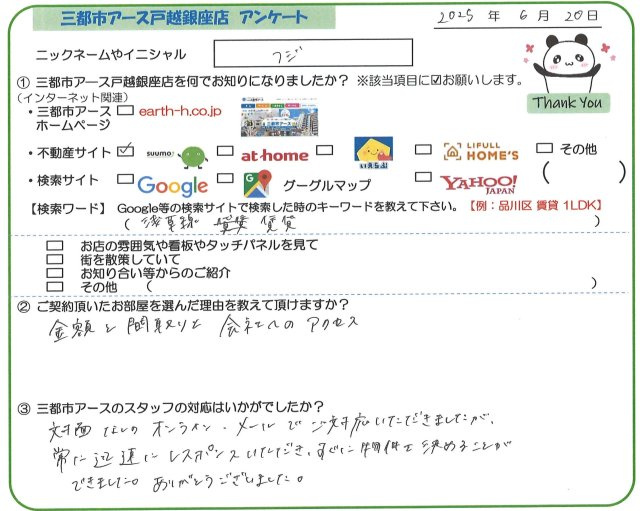 三都市アース戸越銀座店 アンケート
2025 年 6 月 20 日
ニックネームやイニシャル フジ
① 三都市アース戸越銀座店を何でお知りになりましたか？ ※該当項目に☑お願いします。
(インターネット関連)
・三都市アース ホームページ □ earth-h.co.jp
Thank You
・不動産サイト ☑ suumo □ at home □ いえらぶ □ LIFULL HOME'S □ その他
・検索サイト □ Google □ グーグルマップ □ YAHOO! JAPAN ( )
【検索ワード】 Google等の検索サイトで検索した時のキーワードを教えて下さい。【例：品川区 賃貸 1LDK】
( 浅草線 賃貸 )
□ お店の雰囲気や看板やタッチパネルを見て
□ 街を散策していて
□ お知り合い等からのご紹介
□ その他 ( )
② ご契約頂いたお部屋を選んだ理由を教えて頂けますか？
金額と間取りと 会社へのアクセス
③ 三都市アースのスタッフの対応はいかがでしたか？
対面なしのオンライン・メールでご対応いただきましたが、
常に迅速にレスポンスいただき、すぐに物件を決めることが
できました。ありがとうございました。